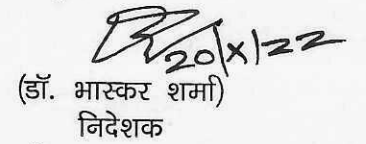 20/X/22
(डॉ. भास्कर शर्मा)
निदेशक